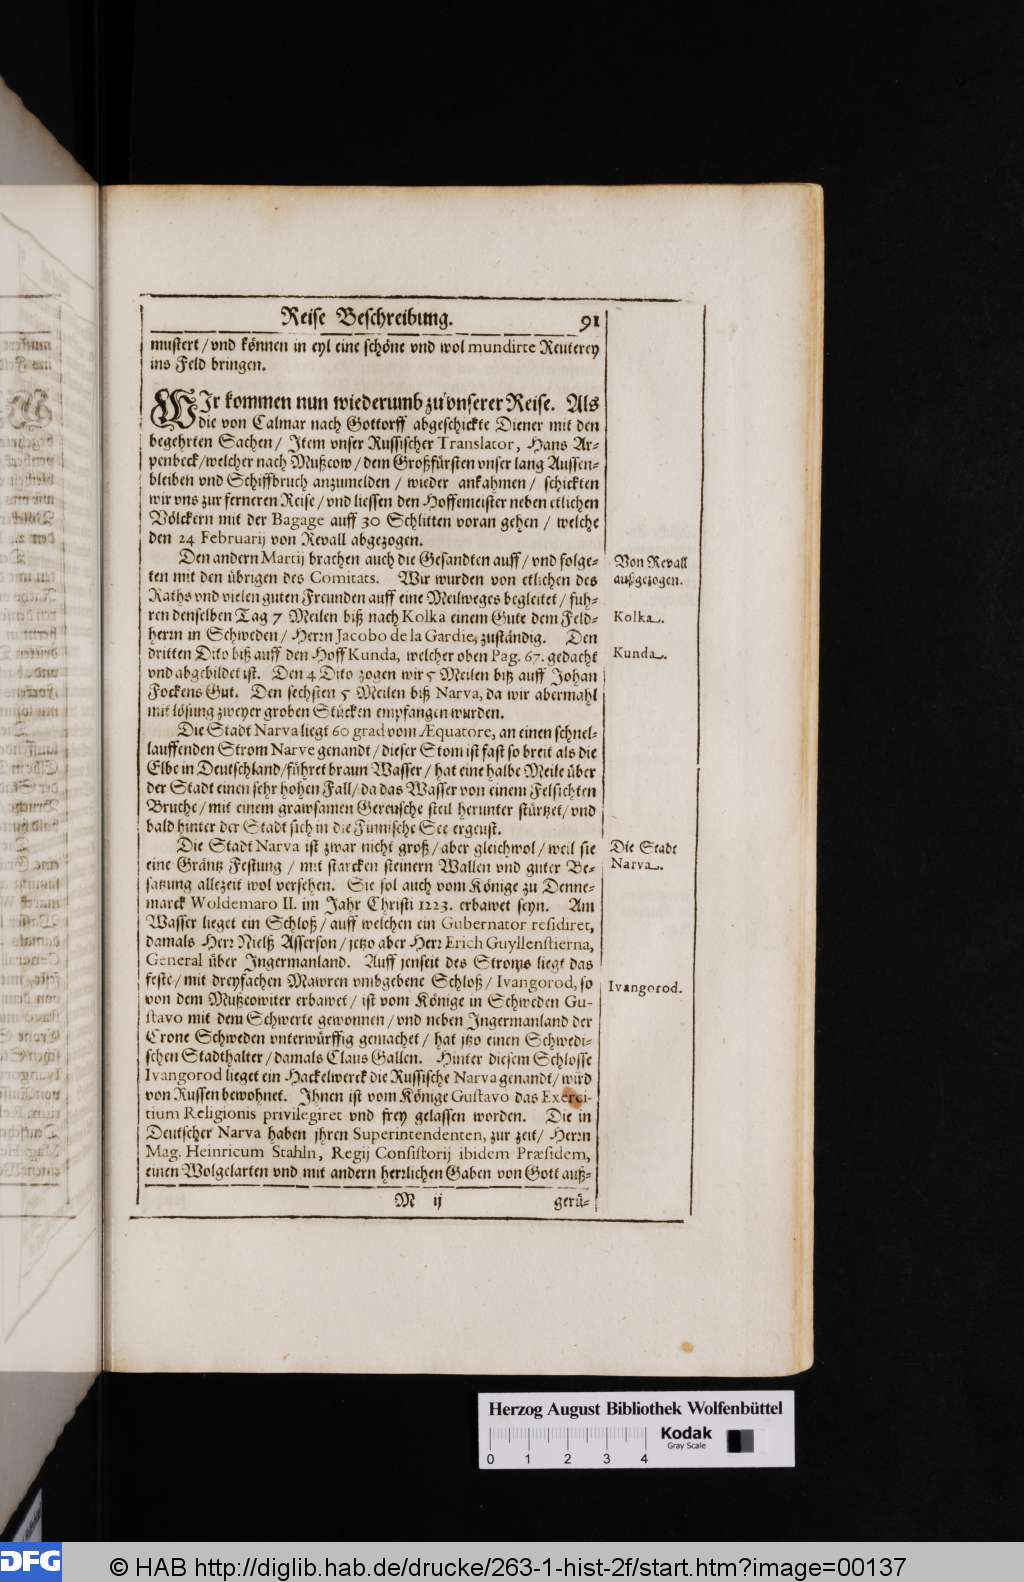 Reise Beschreibung. 91
mustert / vnd können in eyl eine schöne vnd wol mundirte Reuterey
ins Feld bringen.
WIr kommen nun wiederumb zu vnserer Reise. Als
die von Calmar nach Gottorff abgeschickte Diener mit den
begehrten Sachen / Item vnser Russischer Translator, Hans Ar-
penbeck / welcher nach Mußcow / dem Großfürsten vnser lang Aussen-
bleiben vnd Schiffbruch anzumelden / wieder ankahmen / schickten
wir vns zur ferneren Reise / vnd liessen den Hoffemeister neben etlichen
Völckern mit der Bagage auff 30 Schlitten voran gehen / welche
den 24 Februarij von Revall abgezogen.
Den andern Martij brachen auch die Gesandten auff / vnd folge-
ten mit den übrigen des Comitats. Wir wurden von etlichen des
Raths vnd vielen guten Freunden auff eine Meilweges begleitet / fuh-
ren denselben Tag 7 Meilen biß nach Kolka einem Gute dem Feld-
herrn in Schweden / Herrn Jacobo de la Gardie, zuständig. Den
dritten Dito biß auff den Hoff Kunda, welcher oben Pag. 67. gedacht
vnd abgebildet ist. Den 4 Dito zogen wir 5 Meilen biß auff Johan
Fockens Gut. Den sechsten 5 Meilen biß Narva, da wir abermahl
mit lösung zweyer groben Stücken empfangen wurden.
Die Stadt Narva liegt 60 grad vom Æquatore, an einen schnel-
lauffenden Strom Narve genandt / dieser Stom ist fast so breit als die
Elbe in Deutschland / führet braun Wasser / hat eine halbe Meile über
der Stadt einen sehr hohen Fall / da das Wasser von einem Felsichten
Bruche / mit einem grawsamen Gereusche steil herunter stürtzet / vnd
bald hinter der Stadt sich in die Finnische See ergeust.
Die Stadt Narva ist zwar nicht groß / aber gleichwol / weil sie
eine Gräntz Festung / mit starcken steinern Wallen vnd guter Be-
satzung allezeit wol versehen. Sie sol auch vom Könige zu Denne-
marck Woldemaro II. im Jahr Christi 1223. erbawet seyn. Am
Wasser lieget ein Schloß / auff welchen ein Gubernator residiret,
damals Herr Nielß Asserson / jetzo aber Herr Erich Guyllenstierna,
General über Ingermanland. Auff jenseit des Stroms liegt das
feste / mit dreyfachen Mawren vmbgebene Schloß / Ivangorod, so
von dem Mußcowiter erbawet / ist vom Könige in Schweden Gu-
stavo mit dem Schwerte gewonnen / vnd neben Ingermanland der
Crone Schweden vnterwürffig gemachet / hat jtzo einen Schwedi-
schen Stadthalter / damals Claus Gallen. Hinter diesem Schlosse
Ivangorod lieget ein Hackelwerck die Russische Narva genandt / wird
von Russen bewohnet. Ihnen ist vom Könige Gustavo das Exerci-
tium Religionis privilegiret vnd frey gelassen worden. Die in
Deutscher Narva haben jhren Superintendenten, zur zeit / Herrn
Mag. Heinricum Stahln, Regij Consistorij ibidem Præsidem,
einen Wolgelarten vnd mit andern herrlichen Gaben von Gott auß-
M ij gerü-
Von Revall
außgezogen.
Kolka.
Kunda.
Die Stadt
Narva.
Ivangorod.
Herzog August Bibliothek Wolfenbüttel
Kodak
Gray Scale
0 1 2 3 4
DFG © HAB http://diglib.hab.de/drucke/263-1-hist-2f/start.htm?image=00137